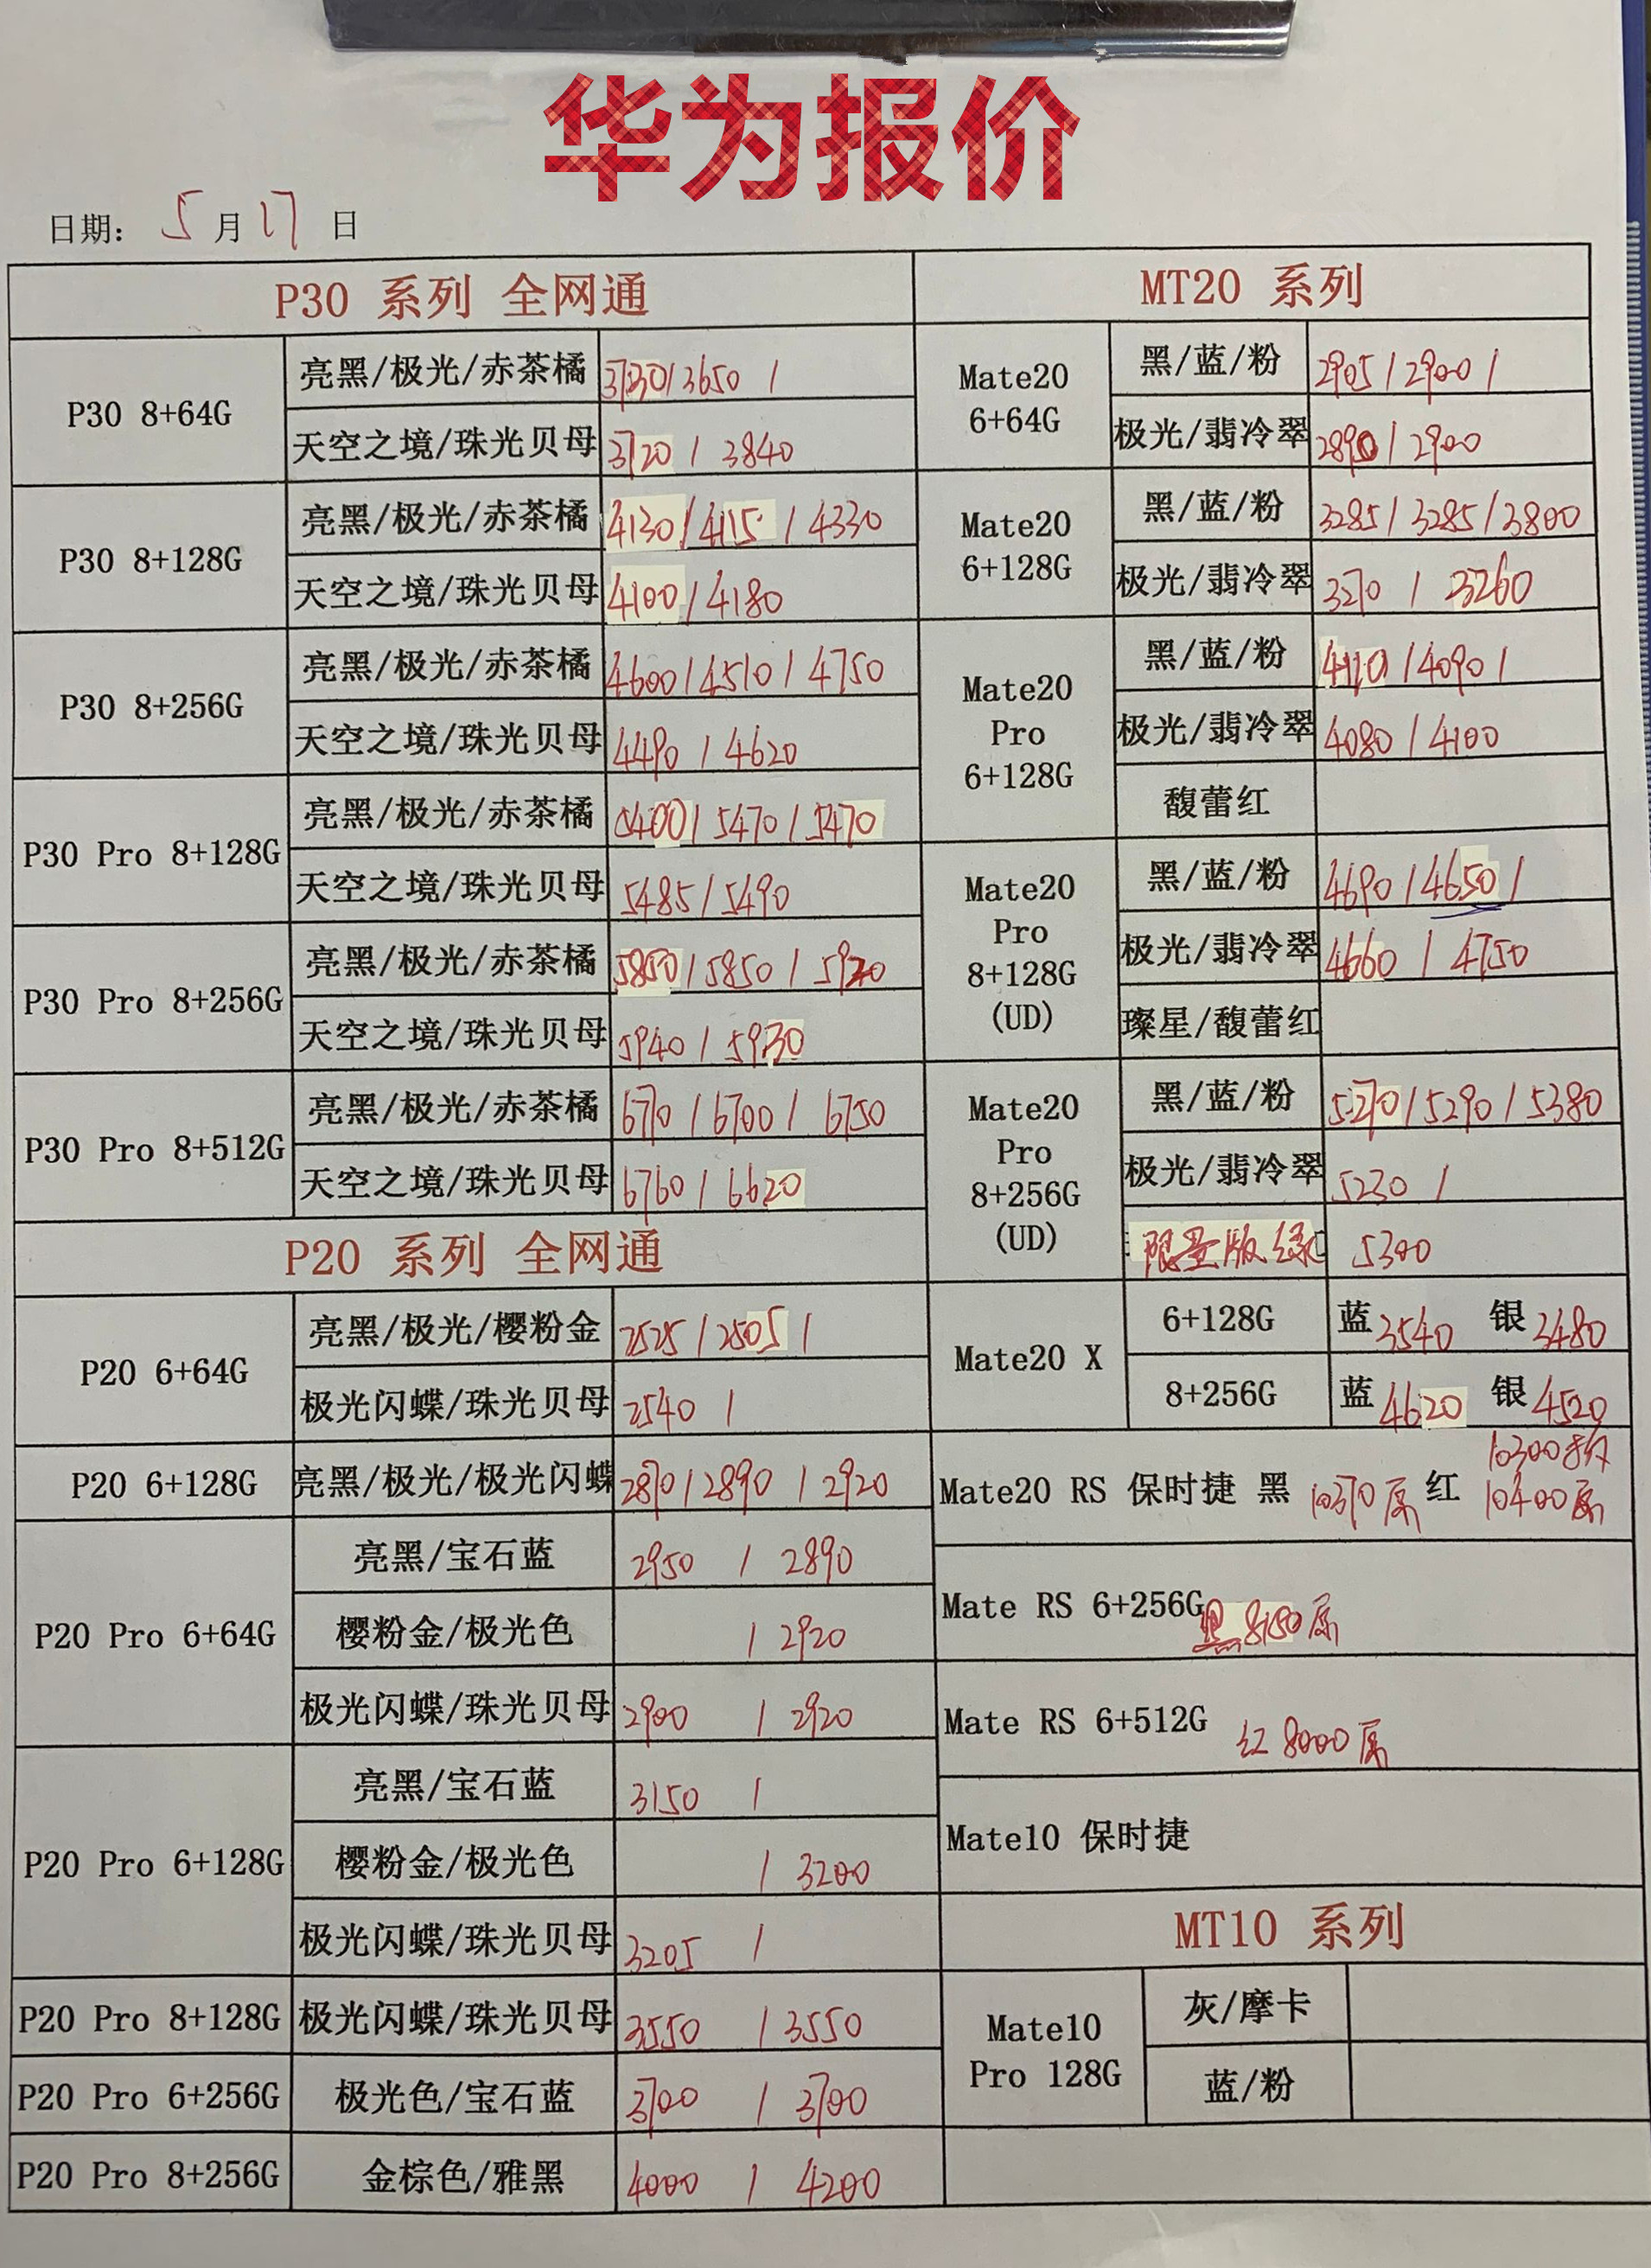 华为报价
日期： 5 月 17 日
P30 系列 全网通
P30 8+64G
亮黑/极光/赤茶橘 3730/3650 /
天空之境/珠光贝母 3720 / 3840
P30 8+128G
亮黑/极光/赤茶橘 4130/4115 / 4330
天空之境/珠光贝母 4100/4180
P30 8+256G
亮黑/极光/赤茶橘 4600/4510/4750
天空之境/珠光贝母 4490/4620
P30 Pro 8+128G
亮黑/极光/赤茶橘 5400/5470/5470
天空之境/珠光贝母 5485/5490
P30 Pro 8+256G
亮黑/极光/赤茶橘 5850/5850/5920
天空之境/珠光贝母 5940/5930
P30 Pro 8+512G
亮黑/极光/赤茶橘 6770/6700/6750
天空之境/珠光贝母 6760/6620
P20 系列 全网通
P20 6+64G
亮黑/极光/樱粉金 2525/2505/
极光闪蝶/珠光贝母 2540 /
P20 6+128G
亮黑/极光/极光闪蝶 2870/2890/2920
P20 Pro 6+64G
亮黑/宝石蓝 2950 / 2890
樱粉金/极光色 / 2920
极光闪蝶/珠光贝母 2900 / 2920
P20 Pro 6+128G
亮黑/宝石蓝 3150 /
樱粉金/极光色 / 3200
极光闪蝶/珠光贝母 3205 /
P20 Pro 8+128G 极光闪蝶/珠光贝母 3550 / 3550
P20 Pro 6+256G 极光色/宝石蓝 3700 / 3700
P20 Pro 8+256G 金棕色/雅黑 4000 / 4200
MT20 系列
Mate20
6+64G
黑/蓝/粉 2905/2900/
极光/翡冷翠 2890/2900
Mate20
6+128G
黑/蓝/粉 3285/3285/3800
极光/翡冷翠 3270 / 3260
Mate20
Pro
6+128G
黑/蓝/粉 4120/4090/
极光/翡冷翠 4080/4100
馥蕾红
Mate20
Pro
8+128G
(UD)
黑/蓝/粉 4690/4650/
极光/翡冷翠 4660 / 4750
璨星/馥蕾红
Mate20
Pro
8+256G
(UD)
黑/蓝/粉 5270/5290/5380
极光/翡冷翠 5230 /
限量版 绿 5300
Mate20 X
6+128G 蓝 3540 银 3480
8+256G 蓝 4620 银 4520
Mate20 RS 保时捷 黑 10370原 红 10300拆
10400原
Mate RS 6+256G 黑 8150原
Mate RS 6+512G 红 8000原
Mate10 保时捷
MT10 系列
Mate10
Pro 128G
灰/摩卡
蓝/粉